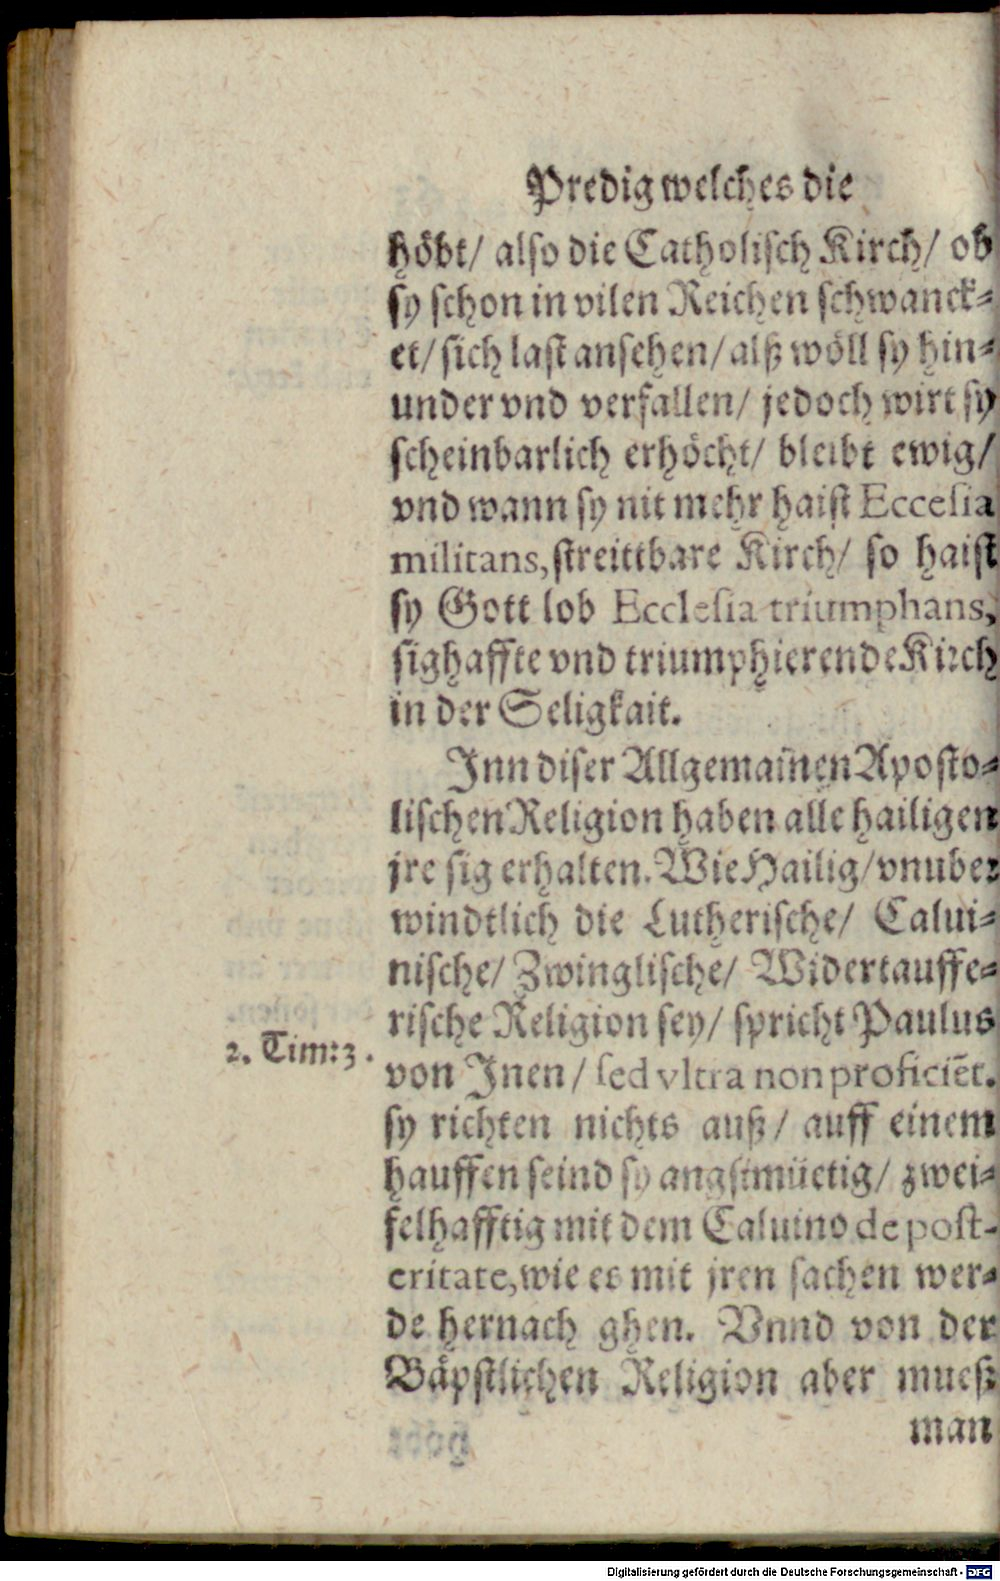 Predig welches die
höbt/ also die Catholisch Kirch/ ob
sy schon in vilen Reichen schwanck-
et/ sich last ansehen/ alß wöll sy hin-
under vnd verfallen/ jedoch wirt sy
scheinbarlich erhöcht/ bleibt ewig/
vnd wann sy nit mehr haist Eccesia
militans, streittbare Kirch/ so haist
sy Gott lob Ecclesia triumphans,
sighaffte vnd triumphierende Kirch
in der Seligkait.
Inn diser Allgemainen Aposto-
lischen Religion haben alle hailigen
jre sig erhalten. Wie Hailig/ vnuber
windtlich die Lutherische/ Calui-
nische/ Zwinglische/ Widertauffe-
rische Religion sey/ spricht Paulus
2. Tim: 3.
von Inen/ sed vltra non proficiẽt.
sy richten nichts auß/ auff einem
hauffen seind sy angstmüetig/ zwei-
felhafftig mit dem Caluino de post-
eritate, wie es mit jren sachen wer-
de hernach ghen. Vnnd von der
Bäpstlichen Religion aber mueß
man
Digitalisierung gefördert durch die Deutsche Forschungsgemeinschaft - DFG